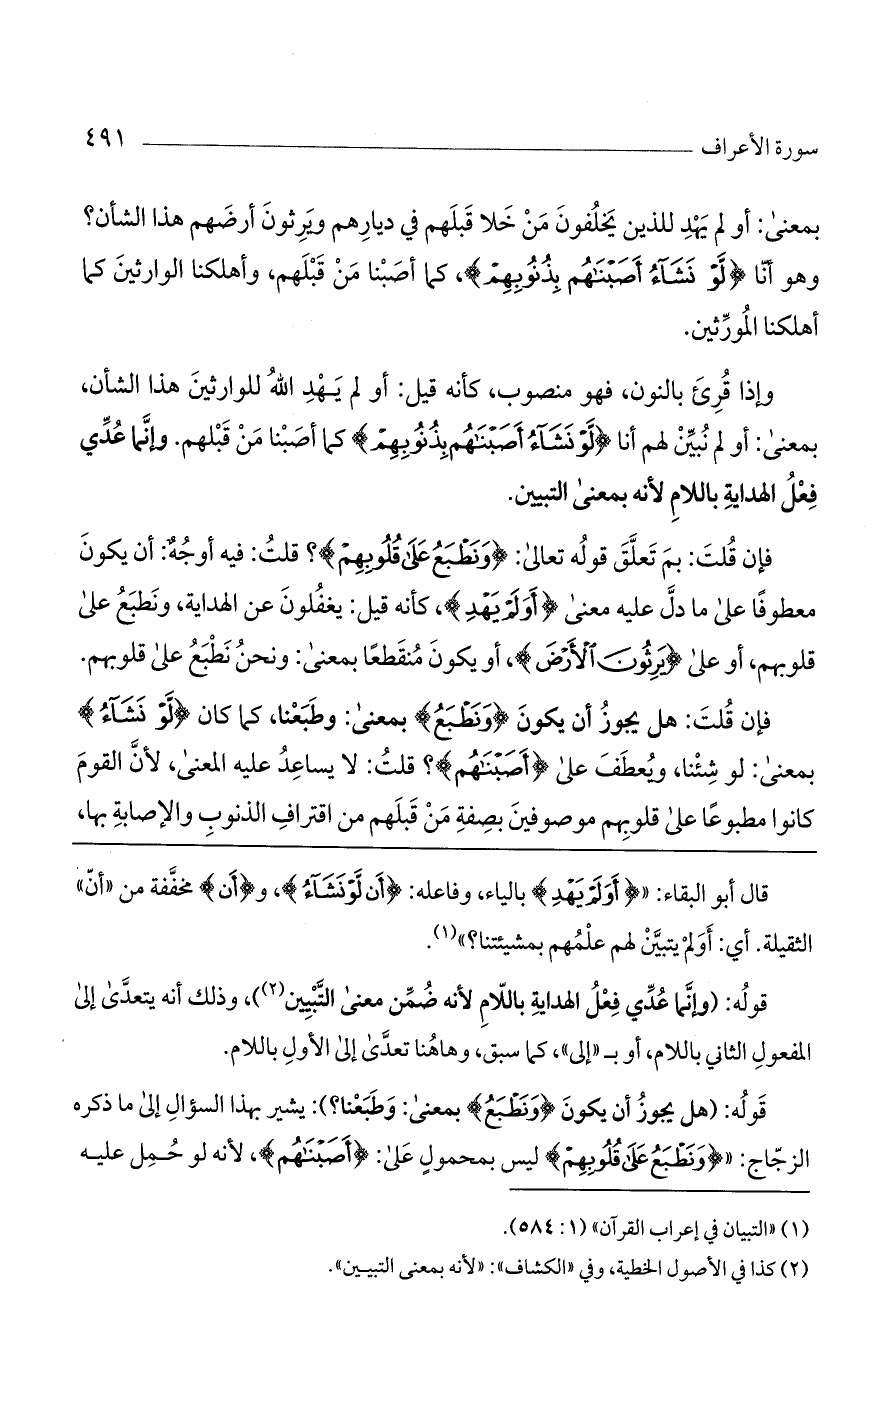 سورة الأعراف ٤٩١
بمعنىٰ: أو لم يَهْدِ للذين يَخلُفونَ مَنْ خَلا قبلَهم في ديارِهم ويَرِثونَ أرضَهم هذا الشأن؟
وهو أنّا ﴿لَّوْ نَشَآءُ أَصَبْنَٰهُم بِذُنُوبِهِمْ﴾، كما أصَبْنا مَنْ قَبْلَهم، وأهلكنا الوارثينَ كما
أهلكنا المُورِّثين.
وإذا قُرِئَ بالنون، فهو منصوب، كأنه قيل: أو لم يَـهْدِ اللهُ للوارثينَ هذا الشأن،
بمعنىٰ: أو لم نُبيِّنْ لهم أنا ﴿لَّوْ نَشَآءُ أَصَبْنَٰهُم بِذُنُوبِهِمْ﴾ كما أصَبْنا مَنْ قَبلهم. وإنَّما عُدِّي
فِعْلُ الهدايةِ باللامِ لأنه بمعنىٰ التبيين.
فإن قُلتَ: بمَ تَعلَّقَ قولُه تعالىٰ: ﴿وَنَطْبَعُ عَلَىٰ قُلُوبِهِمْ﴾؟ قلتُ: فيه أوجُهٌ: أن يكونَ
معطوفًا علىٰ ما دلَّ عليه معنىٰ ﴿أَوَلَمْ يَهْدِ﴾، كأنه قيل: يغفُلونَ عن الهداية، ونَطبَعُ علىٰ
قلوبهم، أو علىٰ ﴿يَرِثُونَ ٱلْأَرْضَ﴾، أو يكونَ مُنقَطعًا بمعنىٰ: ونحنُ نَطْبَعُ علىٰ قلوبهم.
فإن قُلتَ: هل يجوزُ أن يكونَ ﴿وَنَطْبَعُ﴾ بمعنىٰ: وطبَعْنا، كما كان ﴿لَّوْ نَشَآءُ﴾
بمعنىٰ: لو شِئْنا، ويُعطَفَ علىٰ ﴿أَصَبْنَٰهُم﴾؟ قلتُ: لا يساعِدُ عليه المعنىٰ، لأنَّ القومَ
كانوا مطبوعًا علىٰ قلوبِهم موصوفينَ بصِفةِ مَنْ قَبلَهم من اقترافِ الذنوبِ والإصابةِ بها،
قال أبو البقاء: «﴿أَوَلَمْ يَهْدِ﴾ بالياء، وفاعله: ﴿أَن لَّوْ نَشَآءُ﴾، و﴿أَن﴾ مخفَّفة من «أنّ»
الثقيلة. أي: أَوَلمْ يتبيَّنْ لهم علْمُهم بمشيئتنا؟»(١).
قولُه: (وإنَّما عُدِّي فِعْلُ الهدايةِ باللّامِ لأنه ضُمِّن معنىٰ التَّبْيِين(٢))، وذلك أنه يتعدَّىٰ إلىٰ
المفعولِ الثاني باللام، أو بـ «إلى»، كما سبق، وهاهُنا تعدَّىٰ إلىٰ الأولِ باللام.
قولُه: (هل يجوزُ أن يكونَ ﴿وَنَطْبَعُ﴾ بمعنىٰ: وَطَبَعْنا؟): يشير بهذا السؤالِ إلىٰ ما ذكره
الزجّاج: «﴿وَنَطْبَعُ عَلَىٰ قُلُوبِهِمْ﴾ ليس بمحمولٍ عَلىٰ: ﴿أَصَبْنَٰهُم﴾، لأنه لو حُـمِل عليـه
(١) «التبيان في إعراب القرآن» (١: ٥٨٤).
(٢) كذا في الأصول الخطية، وفي «الكشاف»: «لأنه بمعنى التبيـين».